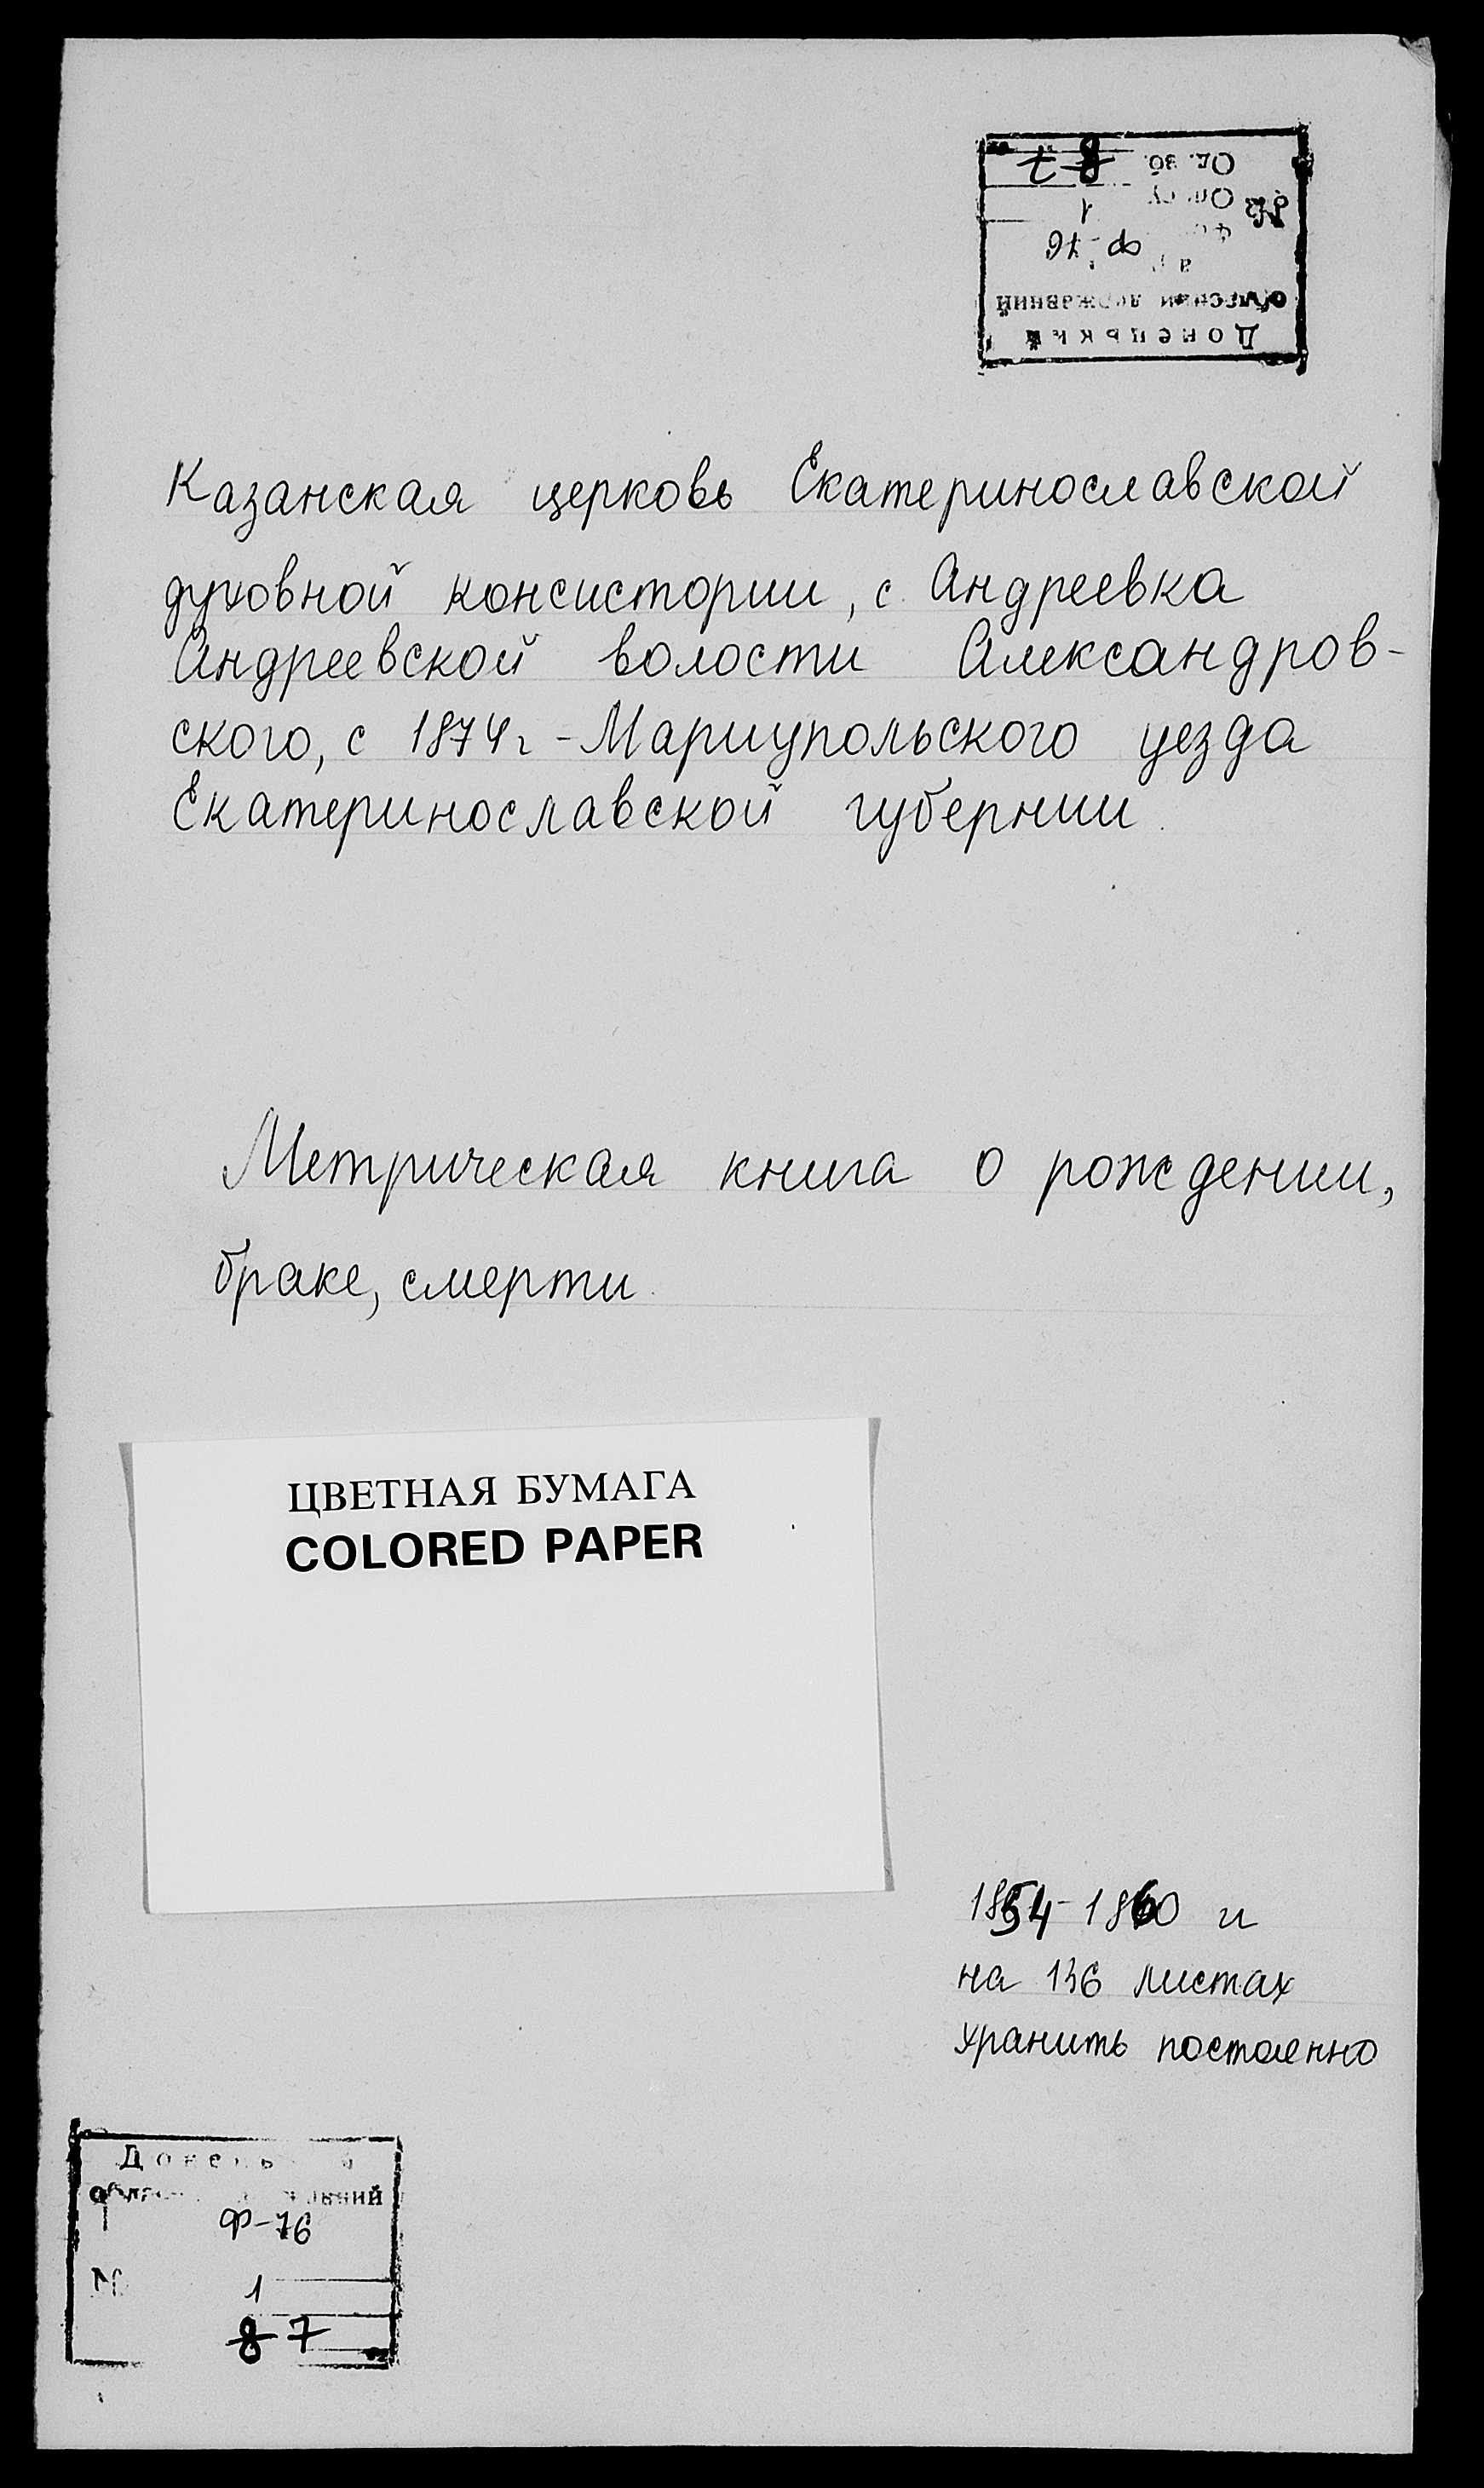 Од. зб. 8 7
Опису 1
№
Ф-76
обласний державний
Донецький
Казанская церковь Екатеринославской
духовной консистории, с. Андреевка
Андреевской волости Александров-
ского, с 1874 г - Мариупольского уезда
Екатеринославской губернии.
Метрическая книга о рождении,
браке, смерти.
ЦВЕТНАЯ БУМАГА
COLORED PAPER
1854-1860 и
на 136 листах
хранить постоянно
Ф-76
№ 1
8 7